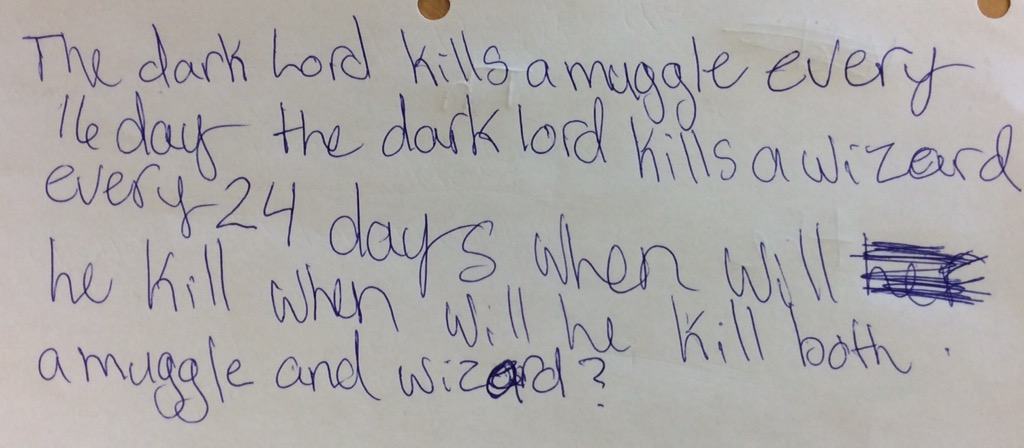 The dark Lord kills a muggle every
16 day the dark lord kills a wizard
every 24 days when will
he kill when will he kill both.
a muggle and wizard?